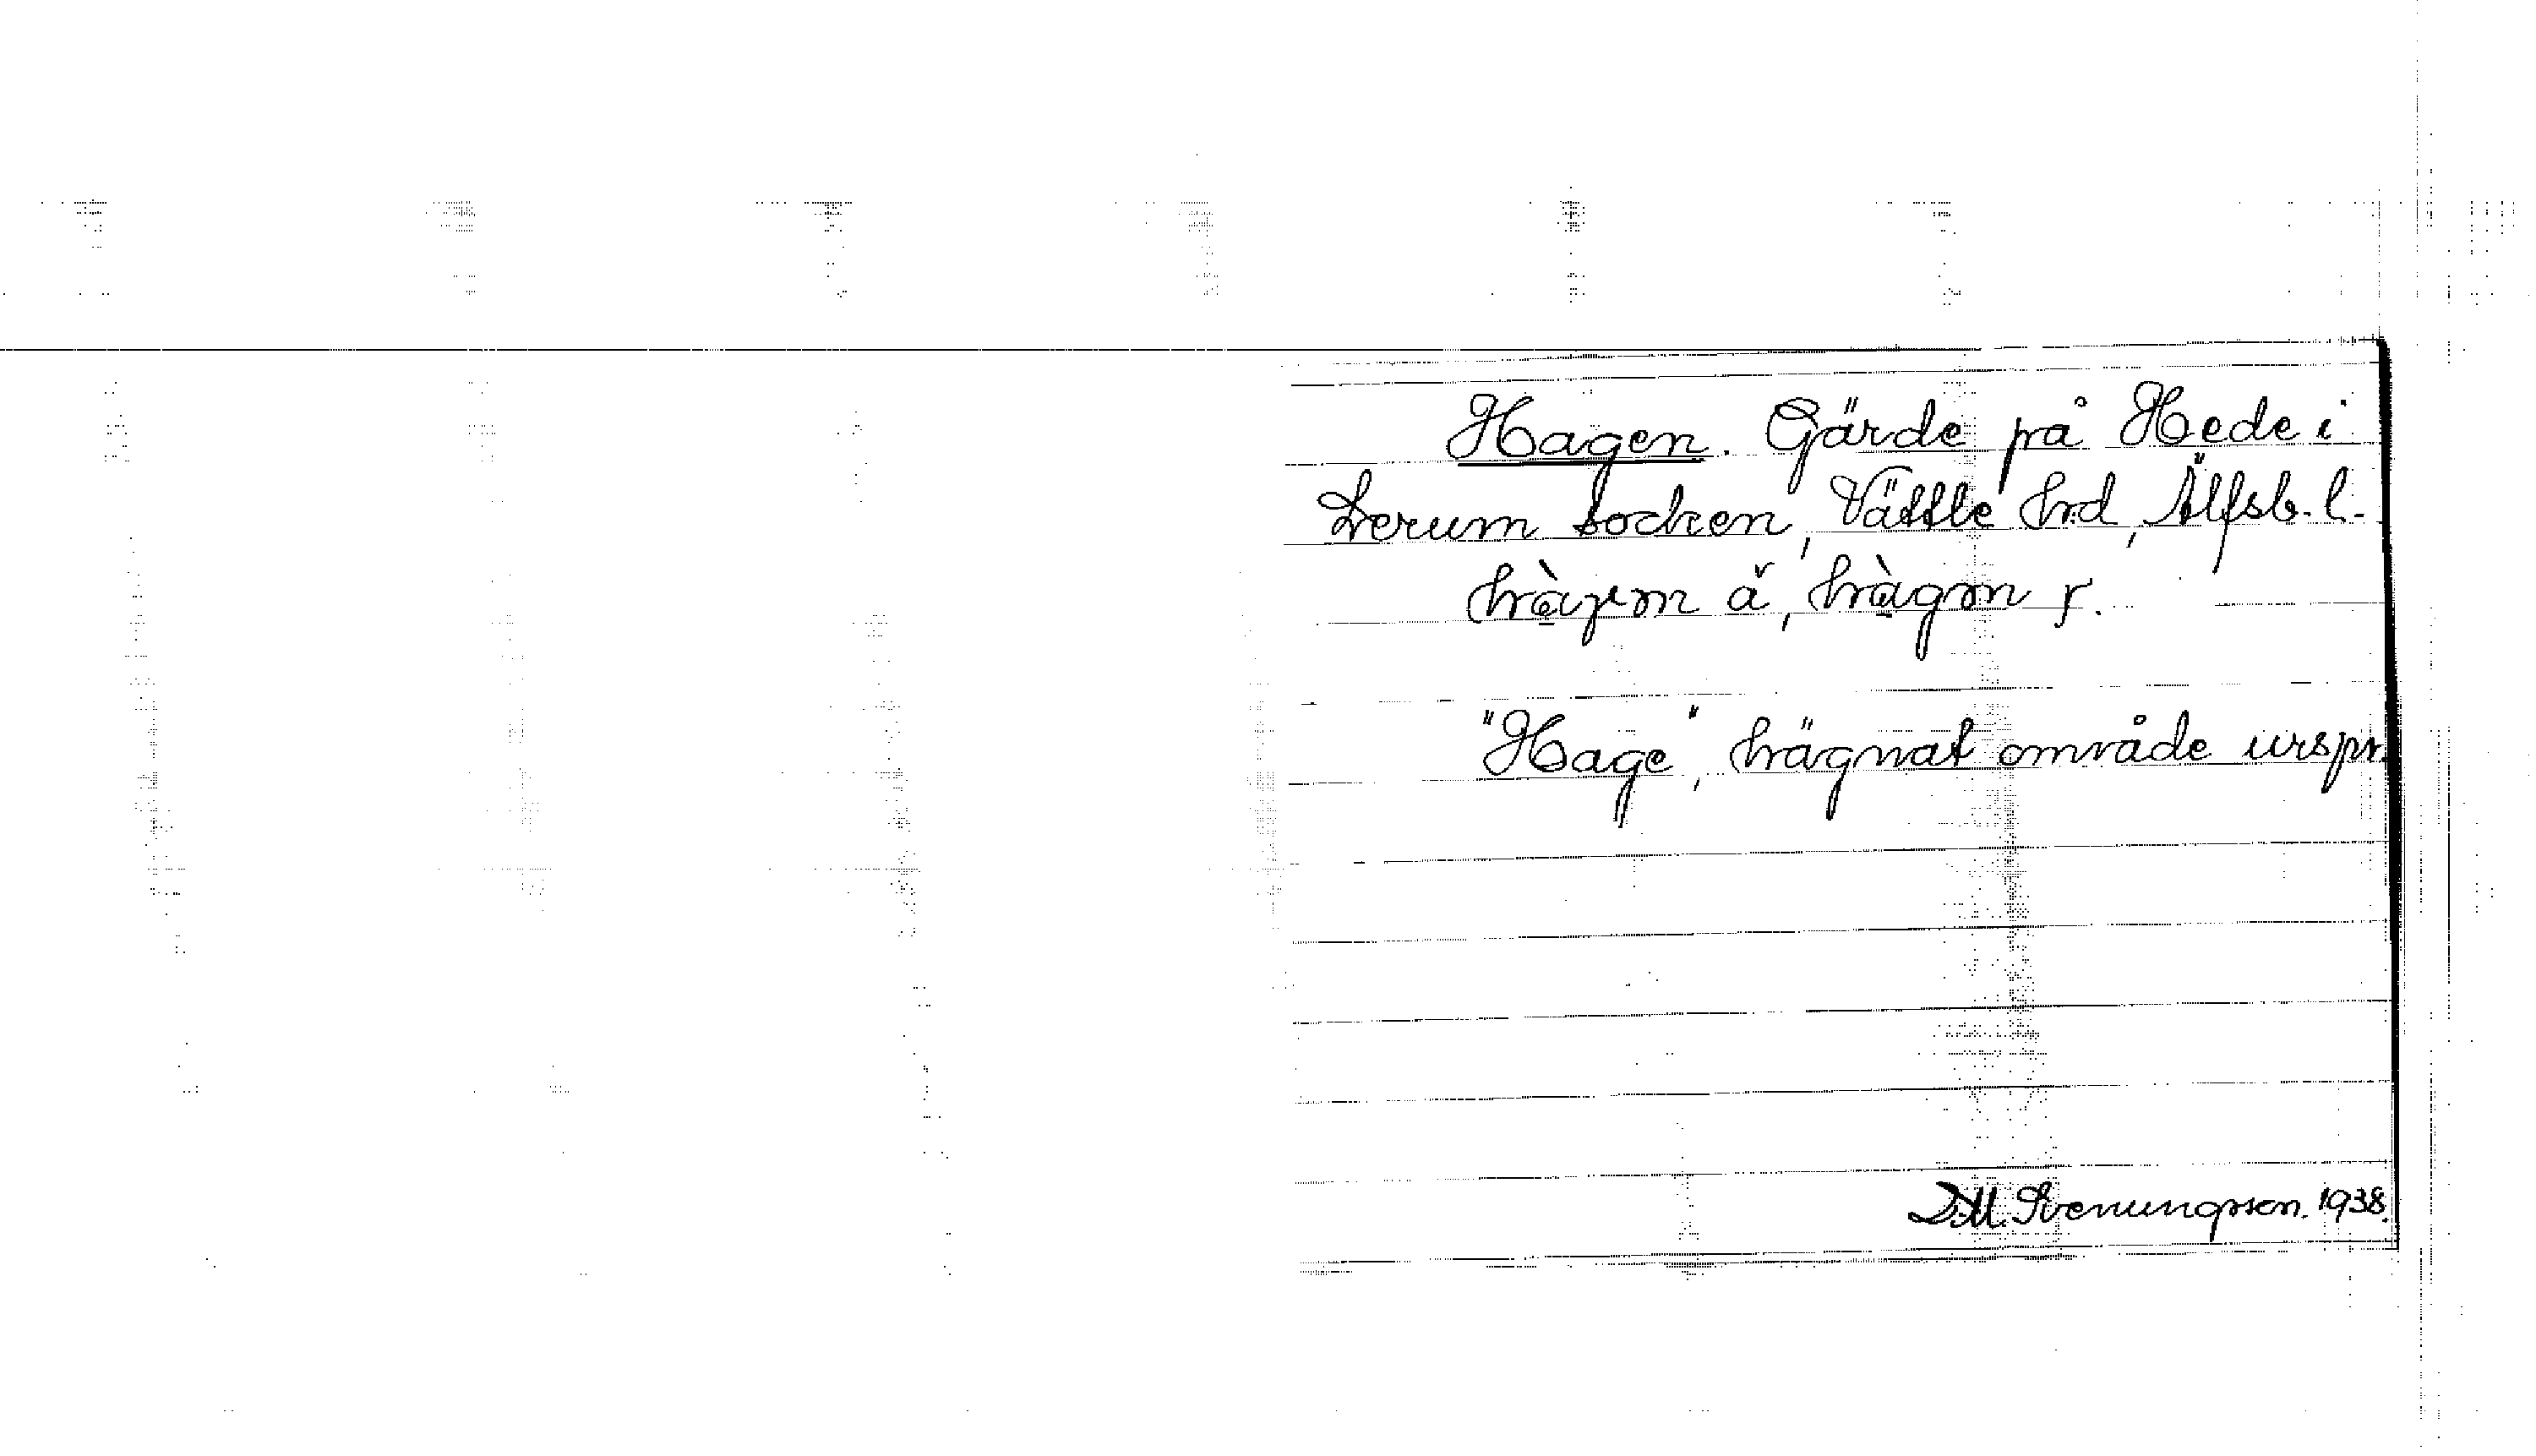 Hagen. Gärde på Hede i
Lerum socken, Vättle hrd, Älfsb. l.
hàgen ä, hàgen y.
"Hage", hägnat område urspr.
D.M. Stenungsson. 1938.